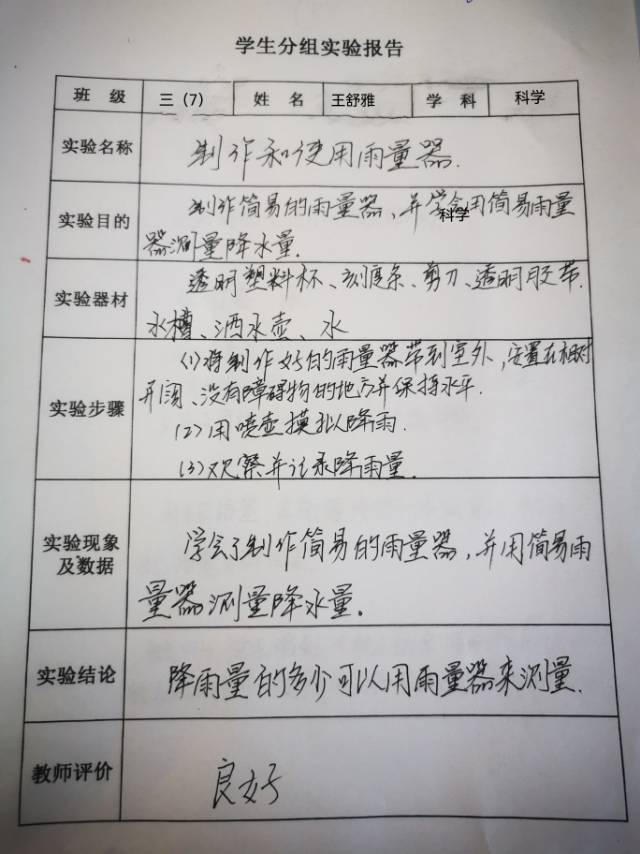 学生分组实验报告
班 级 三（7） 姓 名 王舒雅 学 科 科学
实验名称 制作和使用雨量器.
实验目的 制作简易的雨量器、并学会用简易雨量
科学
器测量降水量.
实验器材 透明塑料杯、刻度条、剪刀、透明胶带.
水槽、洒水壶、水
实验步骤 (1)将制作好的雨量器带到室外,安置在相对
开阔、没有障碍物的地方并保持水平.
(2)用喷壶摸拟降雨.
(3)观察并记录降雨量.
实验现象
及数据
学会了制作简易的雨量器,并用简易雨
量器测量降水量.
实验结论 降雨量的多少可以用雨量器来测量.
教师评价 良好